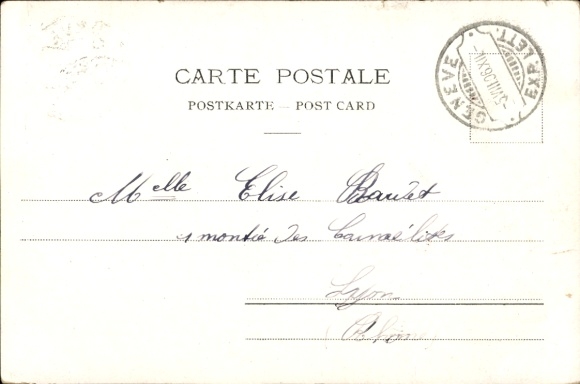 CARTE POSTALE
POSTKARTE — POST CARD
GENEVE EXP. LETT.
Melle Elise Baudet
1 montée des Carmélites
Lyon
Rhône